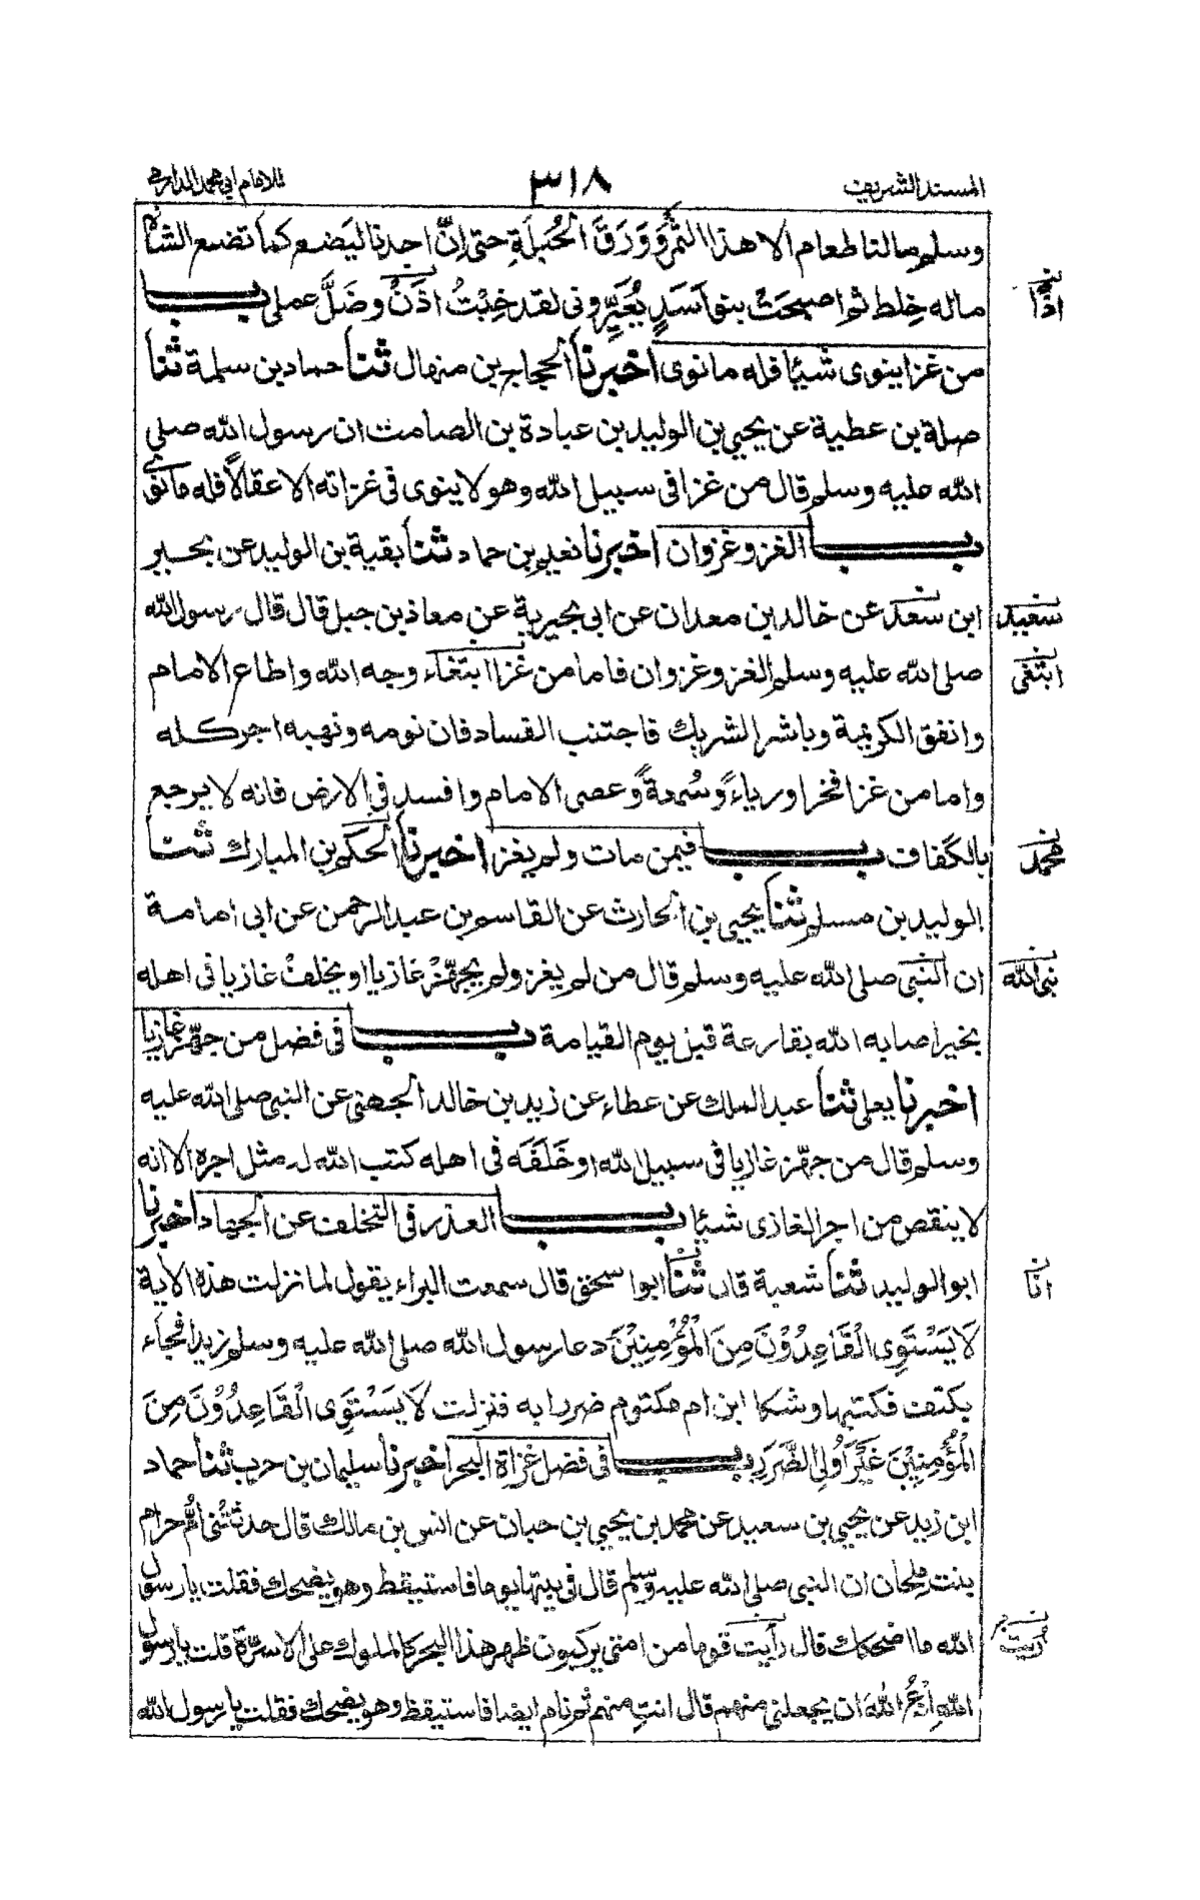 المسند الشريف
٣١٨
للامام ابي محمد الدارمي
وسلم مالنا طعام الا هذا التمر وَوَرَقَ الْحُبْلَةِ حتى اِنَّ احدنا ليَضع كما تضع الشاة
ماله خِلط ثم اصبحَتْ بنو اَسَدٍ يُعَيِّروني لقد خِبْتُ اذَنْ وضَلَّ عملي بـــــاب
اذًا
من غزا ينوي شيئا فله ما نوى اخبرنا الحجاج بن منهال ثنا حماد بن سلمة ثنا
صلة بن عطية عن يحيى بن الوليد بن عبادة بن الصامت ان رسول الله صلى
الله عليه وسلم قال من غزا في سبيل الله وهو لا ينوي في غزاته الا عقالًا فله ما نوى
بـــــاب الغزو غزوان اخبرنا نعيم بن حماد ثنا بقية بن الوليد عن بحير
ابن سعد عن خالد بن معدان عن ابي بحيرية عن معاذ بن جبل قال قال رسول الله
سعيد
صلى الله عليه وسلم الغزو غزوان فاما من غزا ابتغاء وجه الله واطاع الامام
ابتغى
وانفق الكريمة وباشر الشريك فاجتنب الفساد فان نومه ونهبه اجر كله
واما من غزا فخرا ورياءً وسُمعةً وعصى الامام وافسد في الارض فانه لا يرجع
بالكَفاف بـــــاب فيمن مات ولم يغز اخبرنا الحكم بن المبارك ثنا
محمد
الوليد بن مسلم ثنا يحيى بن الحارث عن القاسم بن عبد الرحمن عن ابي امامة
ان النبي صلى الله عليه وسلم قال من لم يغز ولم يجهّزْ غازيا او يخلفْ غازيا في اهله
نبي الله
بخير اصابه الله بقارعة قبل يوم القيامة بـــــاب في فضل من جهّز غازيا
اخبرنا يعلى ثنا عبد الملك عن عطاء عن زيد بن خالد الجهني عن النبي صلى الله عليه
وسلم قال من جهّز غازيا في سبيل الله او خَلَفَه في اهله كتب الله له مثل اجره الا انه
لا ينقص من اجر الغازي شيئا بـــــاب العذر في التخلف عن الجهاد اخبرنا
ابو الوليد ثنا شعبة قال ثنا ابو اسحق قال سمعت البراء يقول لما نزلت هذه الاية
انا
لَا يَسْتَوِي الْقَاعِدُوْنَ مِنَ الْمُؤْمِنِيْنَ دعا رسول الله صلى الله عليه وسلم زيدا فجاء
بكتف فكتبها وشكا ابن ام مكتوم ضررا به فنزلت لَا يَسْتَوِي الْقَاعِدُوْنَ مِنَ
الْمُؤْمِنِيْنَ غَيْرَ اُولِي الضَّرَرِ بـــــاب في فضل غزاة البحر اخبرنا سليمان بن حرب ثنا حماد
ابن زيد عن يحيى بن سعيد عن محمد بن يحيى بن حبان عن انس بن مالك قال حدثتني اُمُّ حرام
بنت ملحان ان النبي صلى الله عليه وسلم قال في بيتها يوما فاستيقظ وهو يضحك فقلت يا رسول
الله ما اضحكك قال رأيت قوما من امتي يركبون ظهر هذا البحر كالملوك على الاسرّة قلت يا رسول
اريت
اللهِ اُدْعُ اللهَ ان يجعلني منهم قال انتِ منهم ثم نام ايضا فاستيقظ وهو يضحك فقلت يا رسول الله